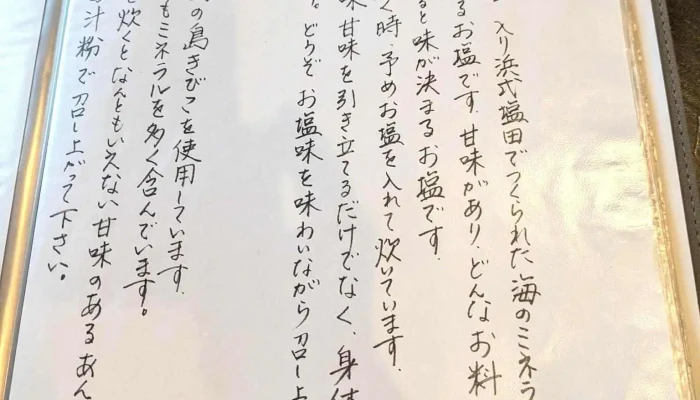 入り浜式塩田でつくられた海のミネラ
るお塩です。甘味があり、どんなお料
ると味が決まるお塩です。
く時、予めお塩を入れて炊いています。
味甘味を引き立てるだけでなく、身体
。どうぞ お塩味を味わいながら召し上
の島きびこを使用しています。
もミネラルを多く含んでいます。
を炊くとなんともいえない甘味のあるあん
汁粉で召し上がって下さい。